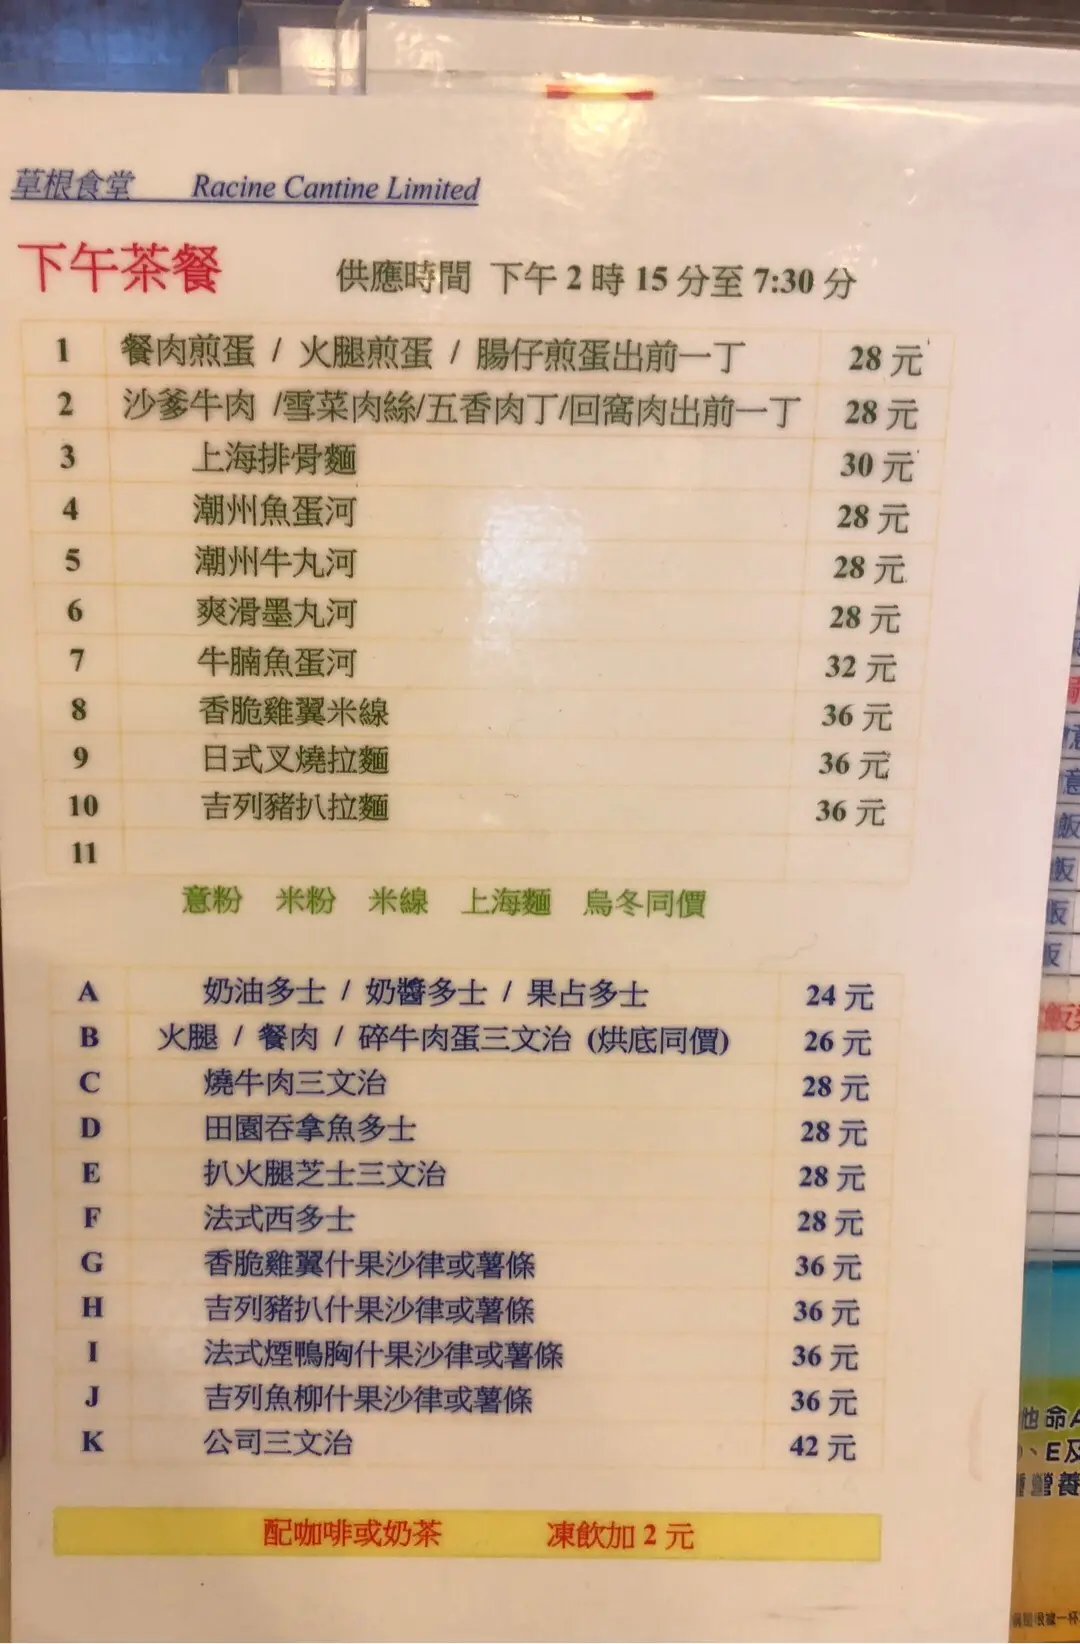 草根食堂 Racine Cantine Limited
下午茶餐 供應時間 下午 2 時 15 分至 7:30 分
1 餐肉煎蛋 / 火腿煎蛋 / 腸仔煎蛋出前一丁 28 元
2 沙爹牛肉 /雪菜肉絲/五香肉丁/回窩肉出前一丁 28 元
3 上海排骨麵 30 元
4 潮州魚蛋河 28 元
5 潮州牛丸河 28 元
6 爽滑墨丸河 28 元
7 牛腩魚蛋河 32 元
8 香脆雞翼米線 36 元
9 日式叉燒拉麵 36 元
10 吉列豬扒拉麵 36 元
11
意粉 米粉 米線 上海麵 烏冬同價
A 奶油多士 / 奶醬多士 / 果占多士 24 元
B 火腿 / 餐肉 / 碎牛肉蛋三文治 (烘底同價) 26 元
C 燒牛肉三文治 28 元
D 田園吞拿魚多士 28 元
E 扒火腿芝士三文治 28 元
F 法式西多士 28 元
G 香脆雞翼什果沙律或薯條 36 元
H 吉列豬扒什果沙律或薯條 36 元
I 法式煙鴨胸什果沙律或薯條 36 元
J 吉列魚柳什果沙律或薯條 36 元
K 公司三文治 42 元
配咖啡或奶茶 凍飲加 2 元
意
意
飯
飯
飯
飯
他命A
、E及
營養